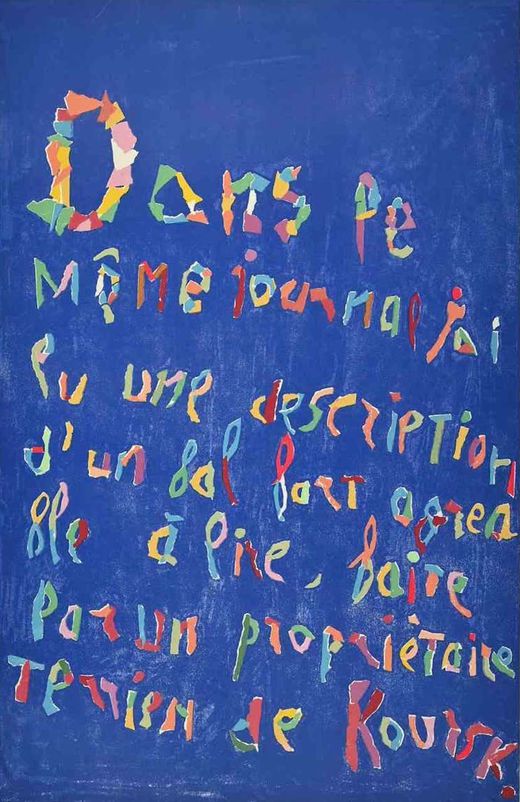 Dans le
même journal jai
lu une description
d'un bal fort agrea
ble à lire, faire
par un propriétaire
terrien de Koursk.